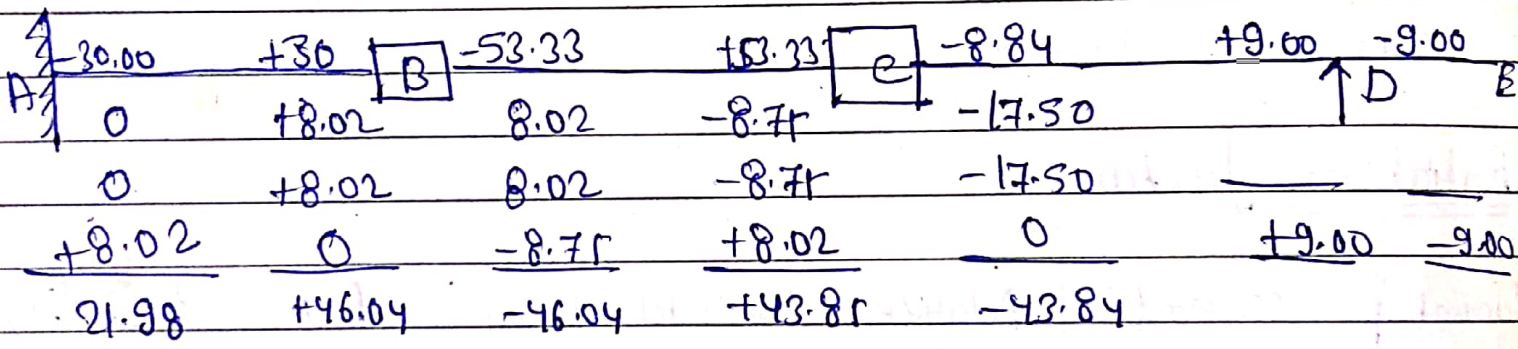 A -30.00 +30 B -53.33 +53.33 C -8.84 +9.00 -9.00
0 +8.02 8.02 -8.75 -17.50 D E
0 +8.02 8.02 -8.75 -17.50
+8.02 0 -8.75 +8.02 0 +9.00 -9.00
21.98 +46.04 -46.04 +43.85 -43.84